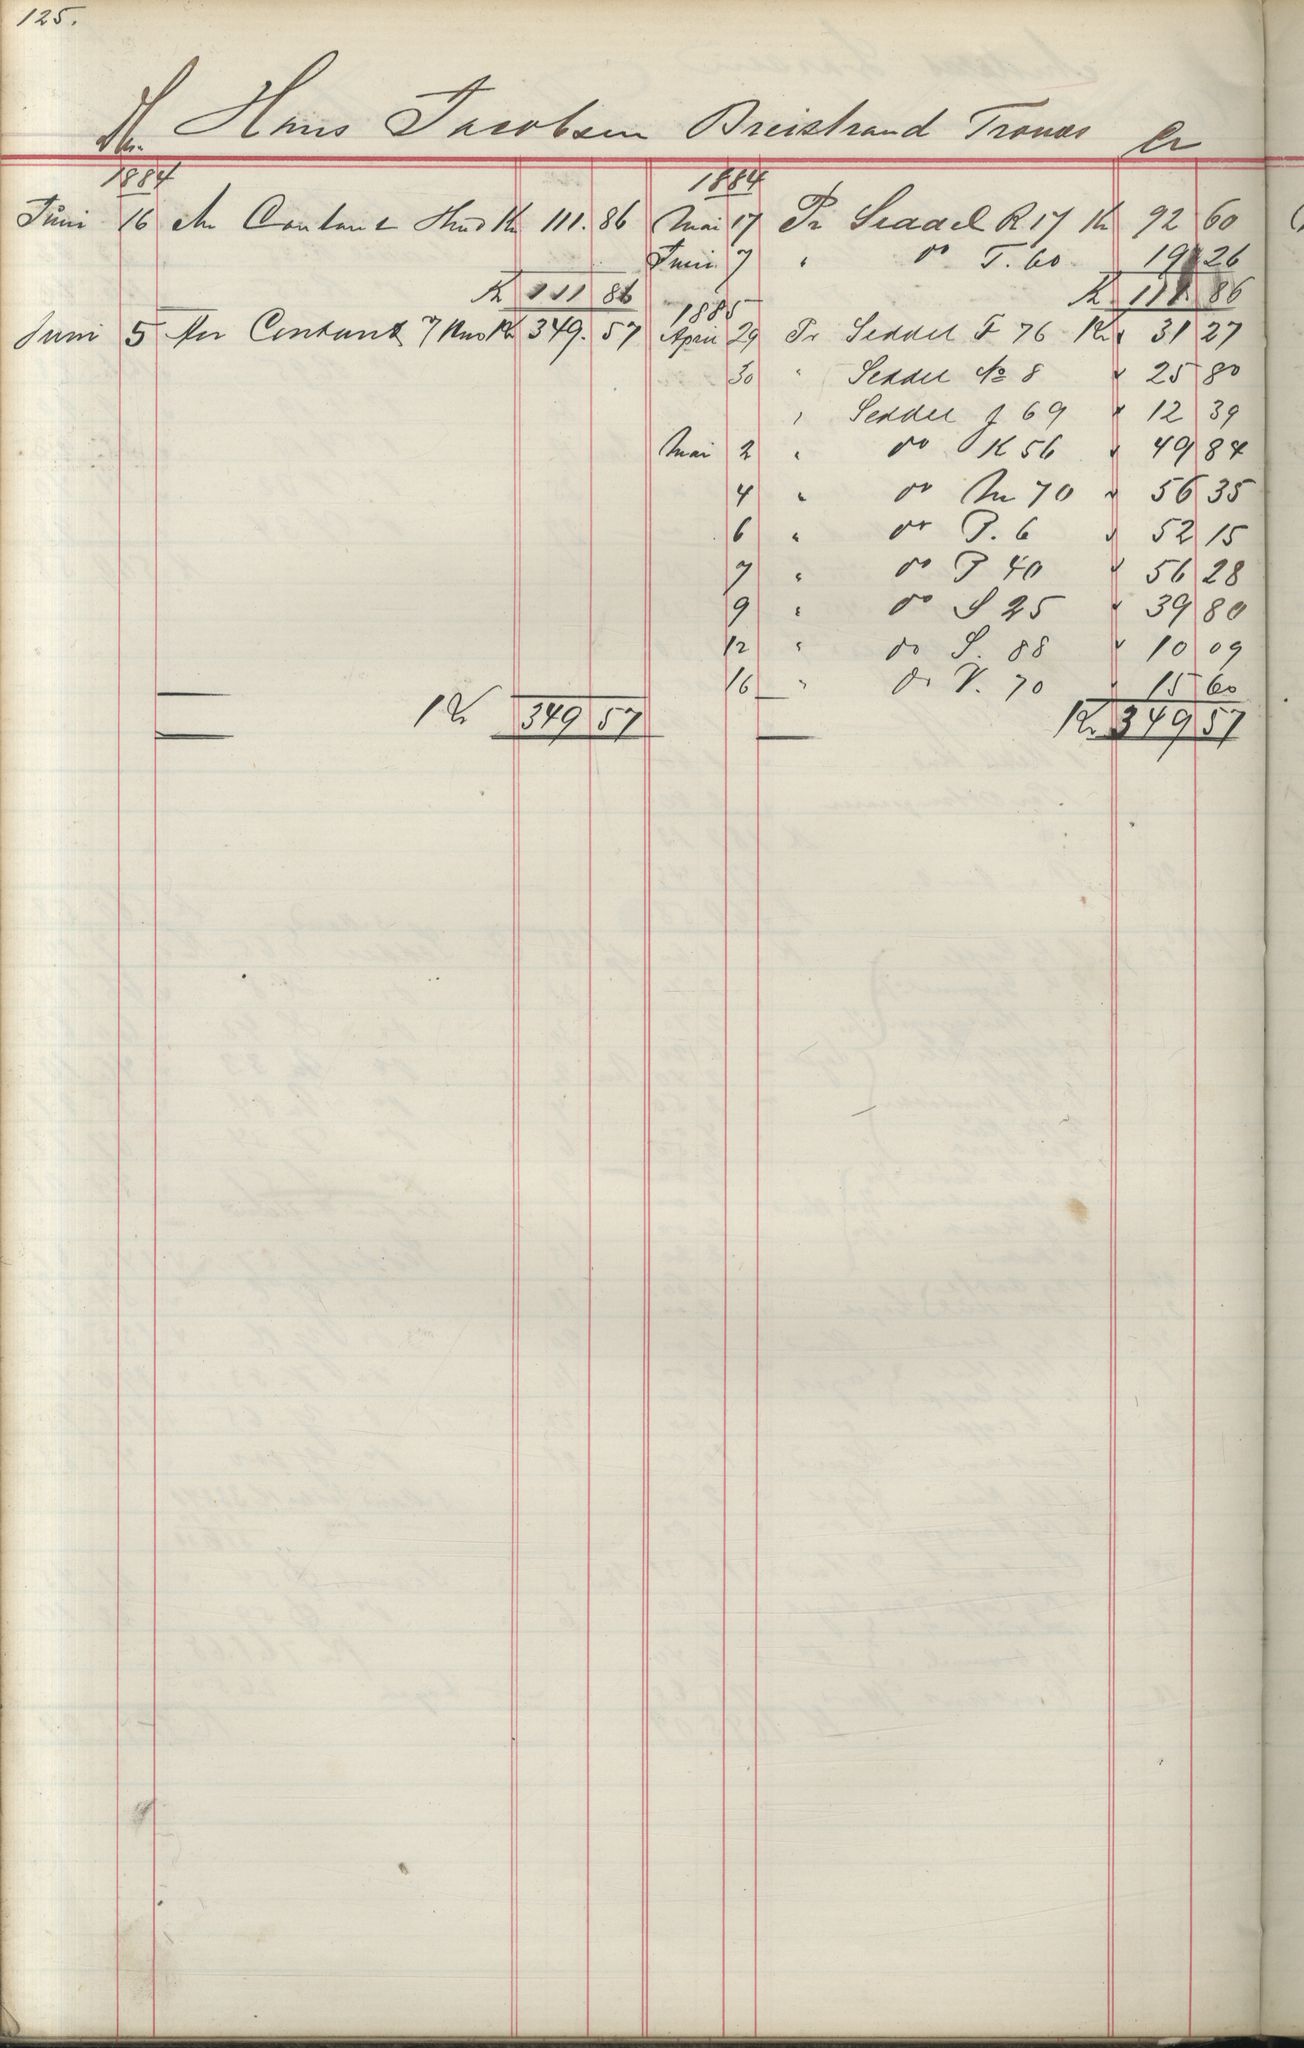 125.
Hans Jacobsen Breistrand Tronæs Cr
1884 1884
Juni 16 An Contant Kr 111. 86 Mai 17 Pr Seddel R 17 Kr 92 60
Juni 7 " do T. 60 19 26
Kr 111 86 Kr 111 86
1885
Juni 5 An Contant Kr 349. 57 April 29 Pr Seddel F 76 Kr 31 27
30 " Seddel No 8 " 25 80
" Seddel J 69 " 12 39
Mai 2 " do K 56 " 49 84
4 " do M 70 " 56 35
6 " do P. 6 " 52 15
7 " do P 40 " 56 28
9 " do S 25 " 39 80
12 " do S. 88 " 10 09
16 " do V. 70 " 15 60
Kr 349 57 Kr. 349 57